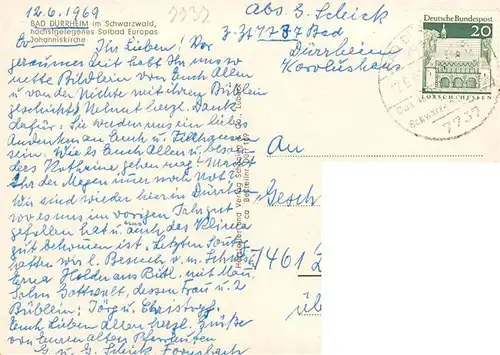 12.6.1969
BAD DÜRRHEIM im Schwarzwald,
höchstgelegenes Solbad Europas
Johanniskirche
Ihr Lieben! Vor
geraumer Zeit habt Ihr uns so
nette Bildlein von Euch Allen
u von der Nichte mit ihren Büblein
geschickt, Helmut herzl. Dank
dafür! Sie werden uns ein liebes
Andenken an Euch u
sein. Wie es Euch Allen u beson-
ders Katharine gehen mag - macht
Ihr der Magen immer noch Not?
Wir sind wieder hier in Dürrh.
wo es uns im vorigen Jahr gut
gefallen hat u. auch das Klima
gut bekommen ist. Letzten Sonnt.
hatten wir l. Besuch v. m. Schw.
Erna aus mit
Sohn Gottwalt, dessen Frau u. 2
Büblein: Jörg u. Christoph.
Euch Lieben Allen herzl. Grüße
von Euren alten Pfarrleuten
G. u. G. Schick
Abs G. Schick
z. Zt 7737 Bad
Dürrheim
An
Gesch
7461
DEUTSCHE BUNDESPOST
20
LORSCH/HESSEN
7737